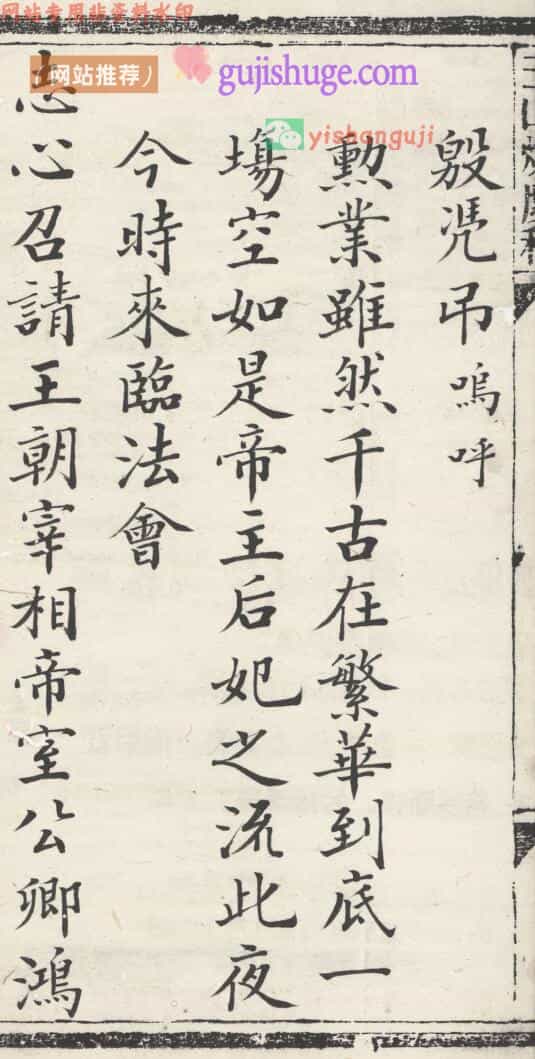 网站推荐）
gujishuge.com
yishanguji
殷凭吊嗚呼
勲業雖然千古在繁華到底一
塲空如是帝主后妃之流此夜
今時來臨法會
志心召請王朝宰相帝室公卿鴻